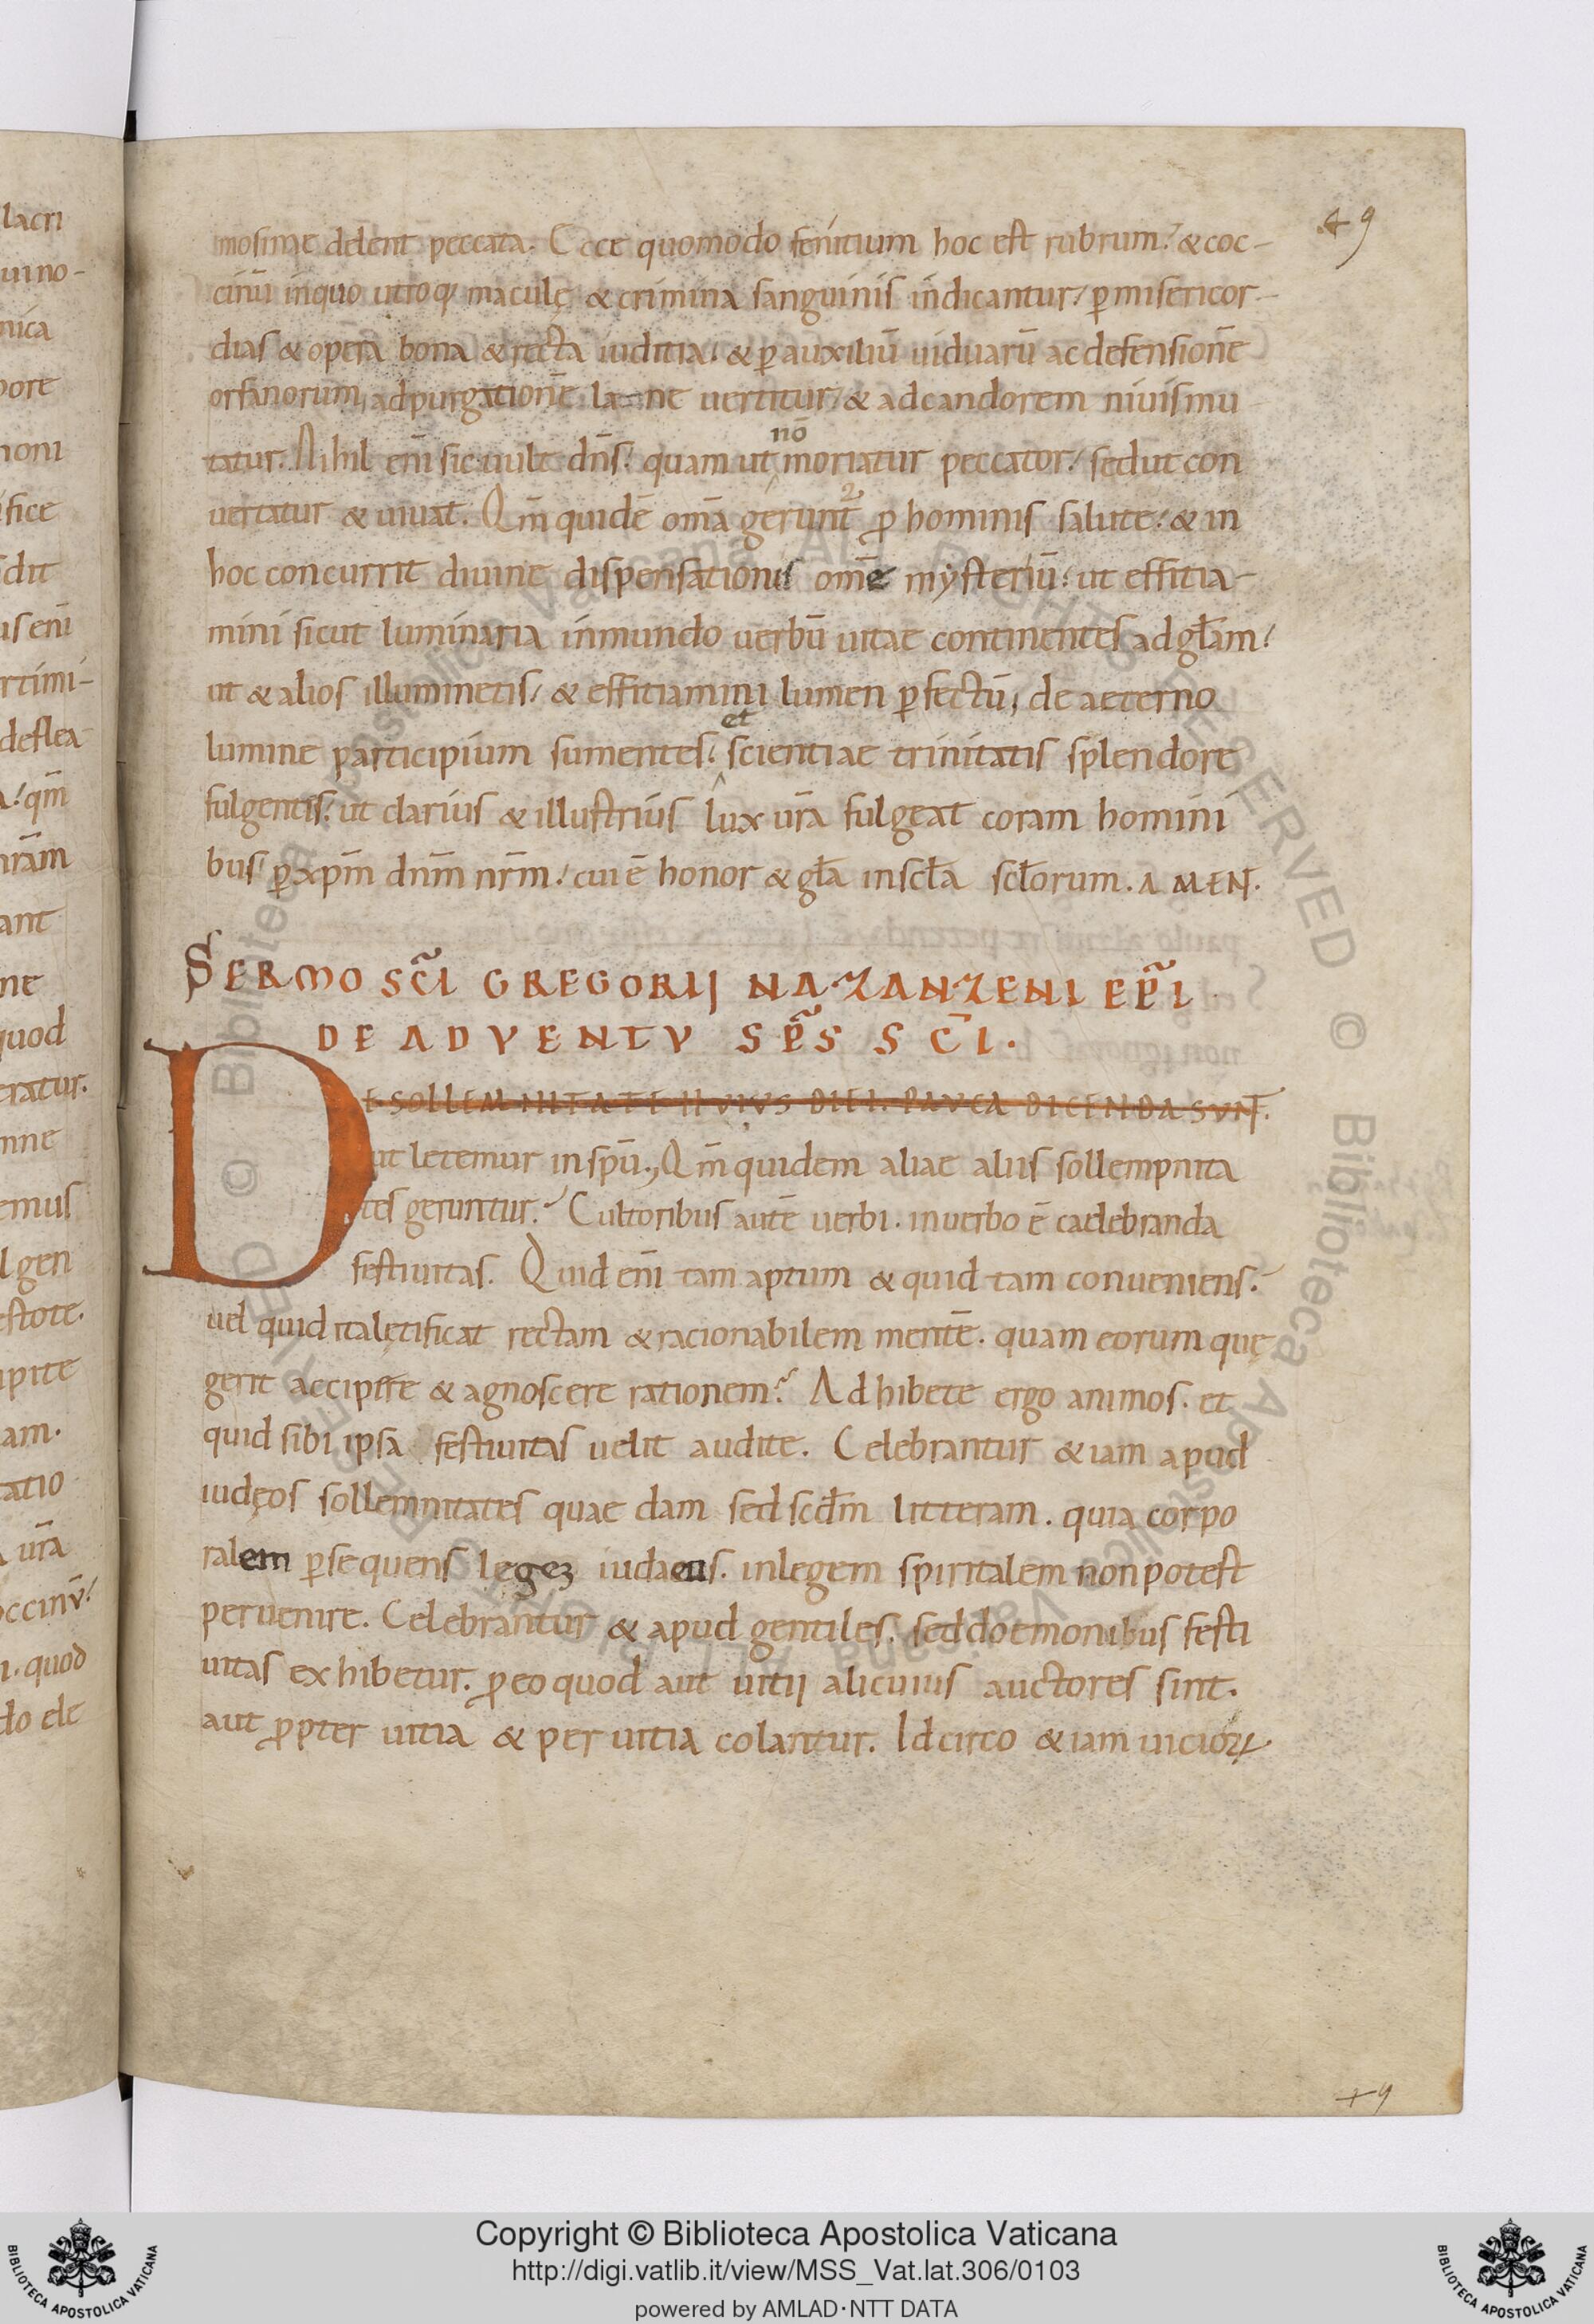 lacri
uino-
nica
pore
noni
ifice
dit
us enī
rtimi-
deflea
a! qm̄
nrām
ant
ne
quod
eratur.
nne
emus
l gen
estote.
ipite
am.
tatio
a urā
occinū!
quod
do ele
49
mosinae delent peccata. Ecce quomodo fenitium hoc est rubrum! & coc-
cinū inquo utroq; maculę & crimina sanguinis indicantur, ꝑ misericor-
dias & opera bona & recta iuditia, & ꝑ auxiliū uiduarū ac defensionē
orfanorum, adpurgationē lane uertitur, & adcandorem niuis mu
tatur. Nihil enī sic uult dn̄s! quam ut moriatur peccator! sed ut con
nō
uertatur & uiuat. Qm̄ quidē om̄a gerunt ꝓ hominis salute! & in
hoc concurrit diuine dispensationis om̄e mysteriū! ut effitia-
mini sicut luminaria inmundo uerbū uitae continentes ad głam!
ut & alios illuminetis, & effitiamini lumen ꝑfectū, de aeterno
et
lumine participium sumentes! scientiae trinitatis splendore
fulgentis! ut clarius & illustrius lux urā fulgeat coram homini
bus ꝑ xp̄m dnm̄ nrm̄! cui ē honor & gła in scła scłorum. AMEN.
SERMO SC̄I GREGORIJ NAZANZENI EP̄I
DE ADVENTV SP̄S SC̄I.
DE SOLLEMNITATE HVIVS DIEI. PAVCA DICENDA SVNT.
ut letemur in spū., Qm̄ quidem aliae aliis sollempnita
tes geruntur. Cultoribus autē uerbi. in uerbo ē caelebranda
festiuitas. Quid enī tam aptum & quid tam conueniens.
uel quid italętificat rectam & racionabilem mentē. quam eorum quę
gerit accipere & agnoscere rationem? Adhibete ergo animos. et
quid sibi ipsa festiuitas uelit audite. Celebrantur & iam apud
iudęos sollemnitates quae dam sed scd̄m litteram. quia corpo
ralem ꝑsequens legeꝫ iudaeus. inlegem spiritalem non potest
peruenire. Celebrantur & apud gentiles. sed doemonibus festi
uitas exhibetur. ꝓ eo quod aut uitij alicuius auctores sint.
aut ꝓpter uitia & per uitia colantur. Idcirco & iam uicioꝝ
49
Copyright © Biblioteca Apostolica Vaticana
http://digi.vatlib.it/view/MSS_Vat.lat.306/0103
powered by AMLAD·NTT DATA
BIBLIOTECA APOSTOLICA VATICANA
BIBLIOTECA APOSTOLICA VATICANA